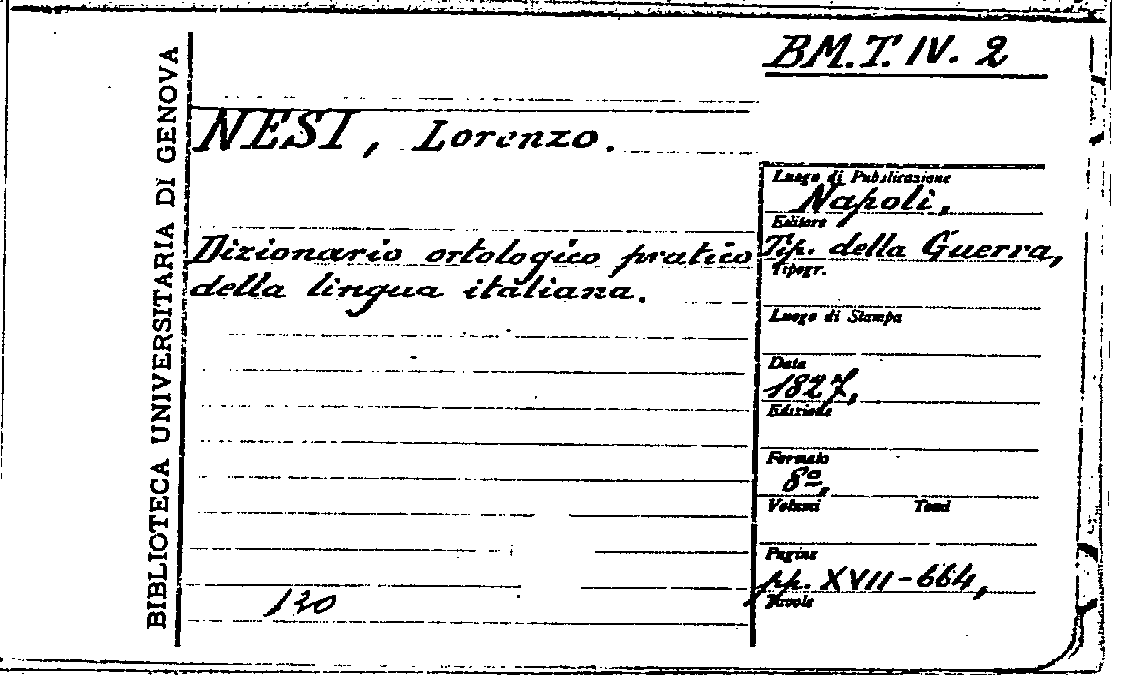 BM.T. IV. 2
BIBLIOTECA UNIVERSITARIA DI GENOVA
NESI, Lorenzo.
Dizionario ortologico pratico
della lingua italiana.
130
Luogo di Pubblicazione
Napoli,
Editore
Tip. della Guerra,
Tipogr.
Luogo di Stampa
Data
1827,
Edizione
Formato
8º,
Volumi Tomi
Pagine
pp. XVII-664,
Tavole